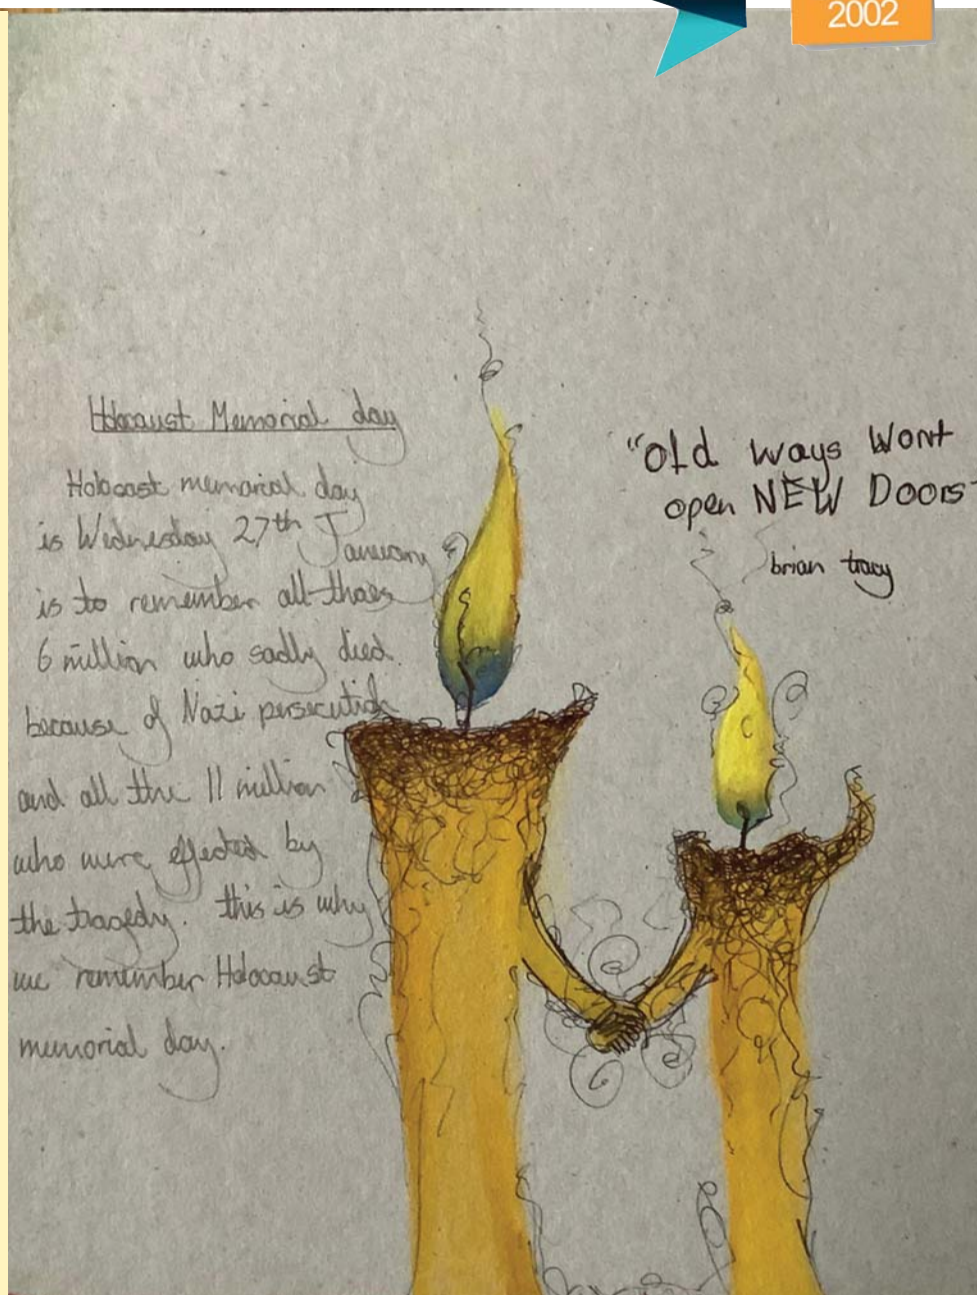 2002
Holocaust Memorial day
Holocost memorial day
is Wednesday 27th January
is to remember all thoes
6 million who sadly died.
because of Nazi persecution
and all the 11 million
who were effected by
the tragedy. this is why
we remember Holocaust
memorial day.
"Old ways Wont
open NEW Doors"
brian tracy